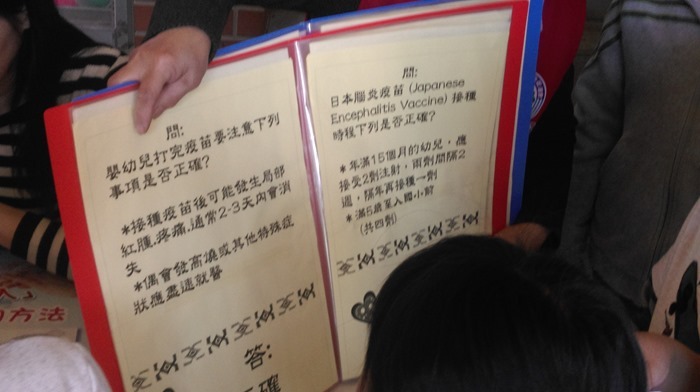 問:
嬰幼兒打完疫苗要注意下列
事項是否正確?
*接種疫苗後可能發生局部
紅腫,疼痛,通常2-3天內會消
失
*偶會發高燒或其他特殊症
狀應盡速就醫
答:
正確
問:
日本腦炎疫苗 (Japanese
Encephalitis Vaccine) 接種
時程下列是否正確?
*年滿15個月的幼兒,應
接受2劑注射,兩劑間隔2
週,隔年再接種一劑
*滿5歲至入國小前
(共四劑)
方法